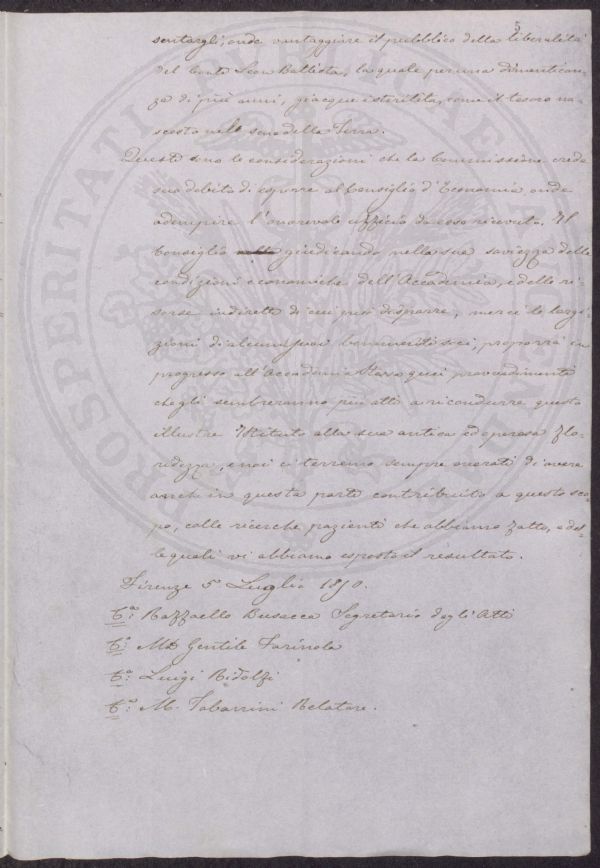 5
sentargli, onde vantaggiare il pubblico della liberalità
del Conte Leon Battista, la quale per una dimentican-
za di più anni, giacque isterilita, come il tesoro na-
scosto nello seno della Terra.
Queste sono le considerazioni che la Commissione crede
suo debito di esporre al Consiglio d'Economia onde
adempire l'onorevole ufficio da esso ricevuto. Il
Consiglio giudicando nella sua saviezza delle
condizioni economiche dell'Accademia, e delle ri-
sorse indirette di cui può disporre, mercè le largi-
zioni di alcuni suoi benemeriti soci, proporrà in
progresso all'Accademia stessa quei provvedimenti
che gli sembreranno più atti a ricondurre questo
illustre Istituto alla sua antica ed operosa flo-
ridezza, e noi ci terremo sempre onorati di avere
anche in questa parte contribuito a questo sco-
po, colle ricerche pazienti che abbiamo fatto, e del-
le quali vi abbiamo esposto il resultato.
Firenze 5 Luglio 1850.
Raffaello Busacca Segretario degli Atti
Gentile Farinola
Luigi Ridolfi
M. Tabarrini Relatore.
PROSPERITATI PUBLICAE AUGENDAE